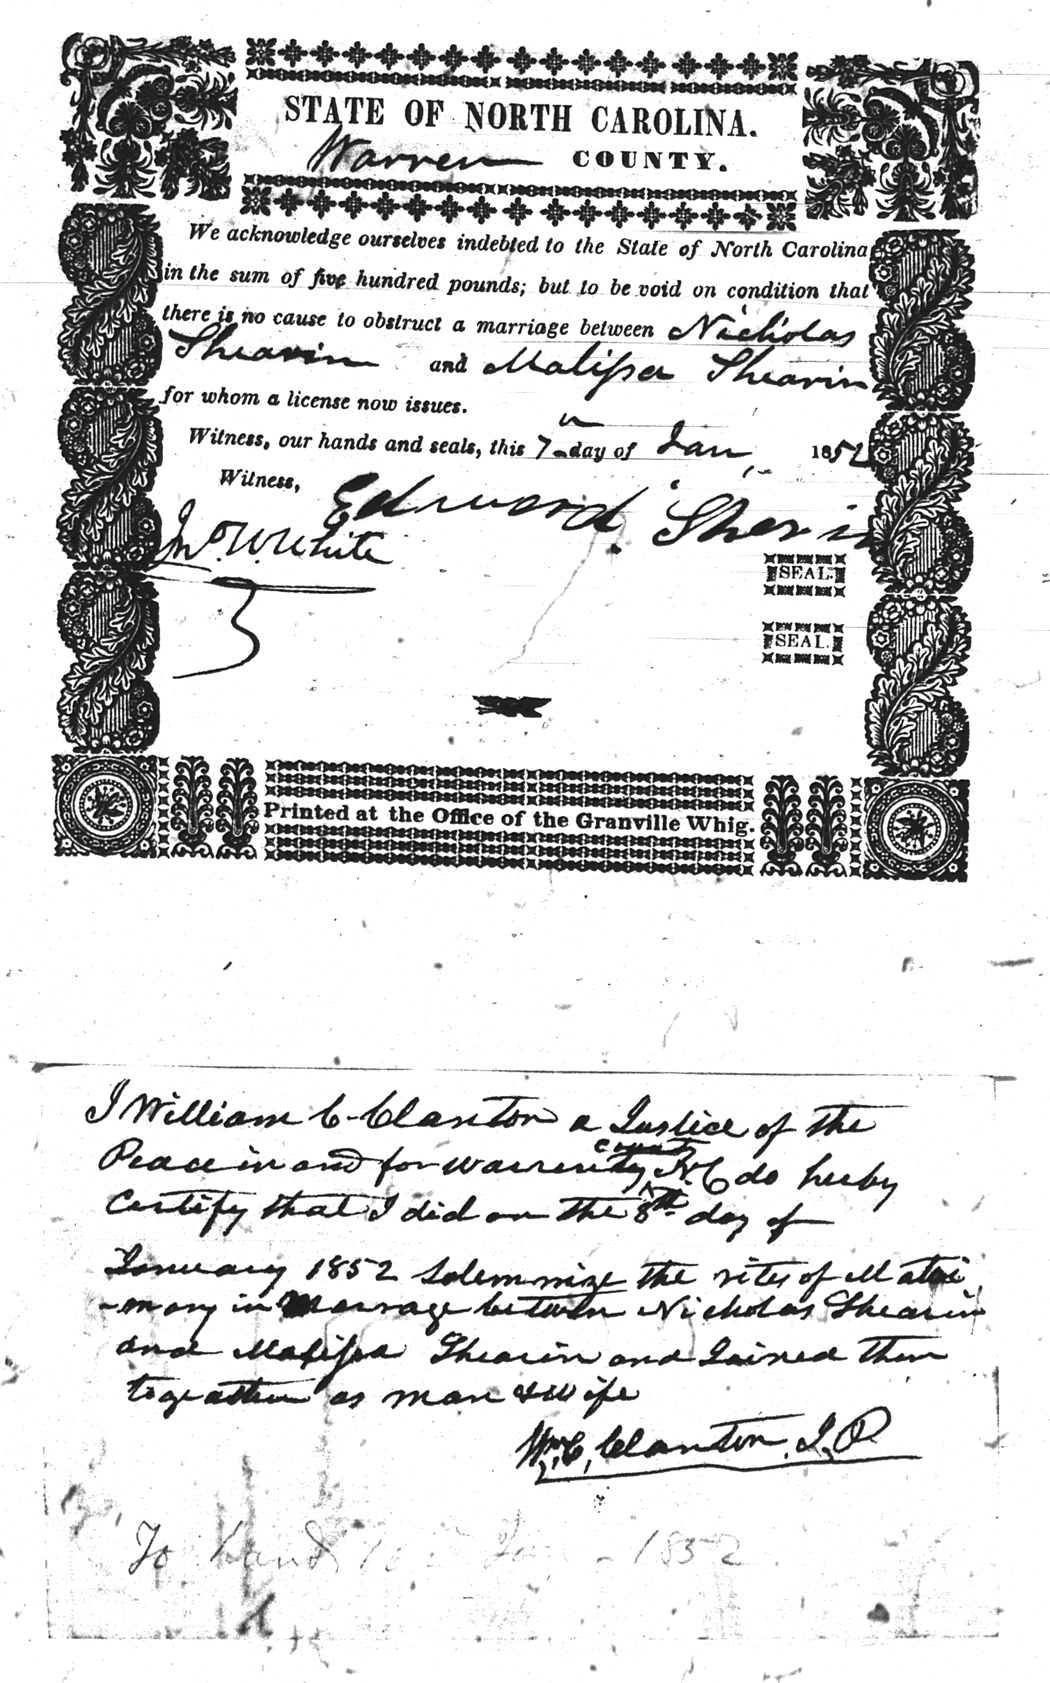 STATE OF NORTH CAROLINA.
Warren COUNTY.
We acknowledge ourselves indebted to the State of North Carolina
in the sum of five hundred pounds; but to be void on condition that
there is no cause to obstruct a marriage between Nicholas
Shearin and Malissa Shearin
for whom a license now issues.
Witness, our hands and seals, this 7th day of Jan, 1852
Witness,
Edward Sherin
Jno. W. White
SEAL.
SEAL.
Printed at the Office of the Granville Whig.
I William C Clanton a Justice of the
county
Peace in and for warren ty N.C do herby
Certify that I did on the 8th day of
January 1852 Solemnize the rites of Matri
-mony in Marrage between Nicholas Shearin
and Malissa Shearin and Joined them
togeather as man & wife
Wm, C, Clanton J, P.
To hand Jan 1852